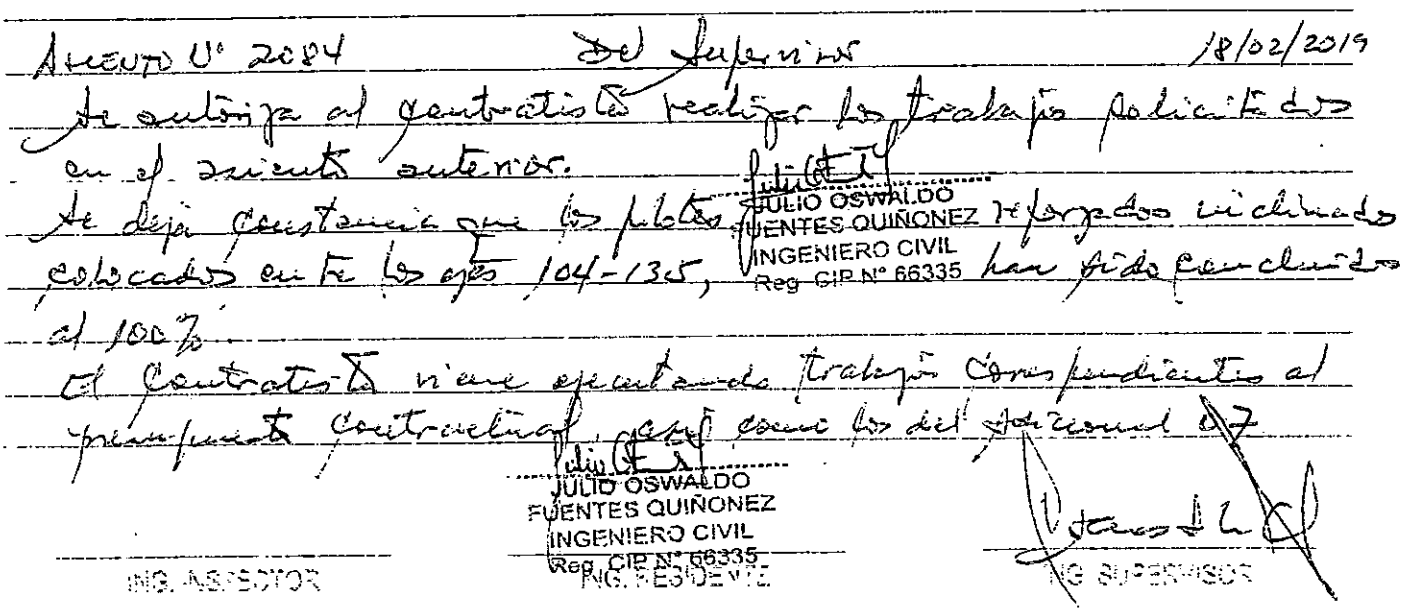 ASIENTO N° 2084 Del Supervisor 18/02/2019
Se autoriza al contratista realizar los trabajos solicitados
en el asiento anterior.
Se deja constancia que los pilotes reforzados inclinados
JULIO OSWALDO
FUENTES QUIÑONEZ
INGENIERO CIVIL
Reg. CIP N° 66335
colocados entre los ejes 104-135, han sido concluidos
al 100%.
El contratista viene ejecutando trabajos correspondientes al
presupuesto contractual, así como los del Adicional 07
JULIO OSWALDO
FUENTES QUIÑONEZ
INGENIERO CIVIL
Reg. CIP N° 66335
ING. INSPECTOR ING. RESIDENTE ING. SUPERVISOR